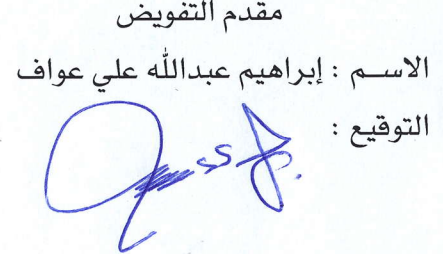 مقدم التفويض
الاسـم : إبراهيم عبدالله علي عواف
التوقيع :